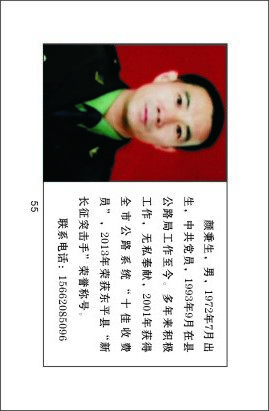 颜秉生，男，1972年7月出
生，中共党员，1993年9月在县
公路局工作至今。多年来积极
工作，无私奉献，2001年获得
全市公路系统“十佳收费
员”，2013年荣获东平县“新
长征突击手”荣誉称号。
联系电话：15662085096
55